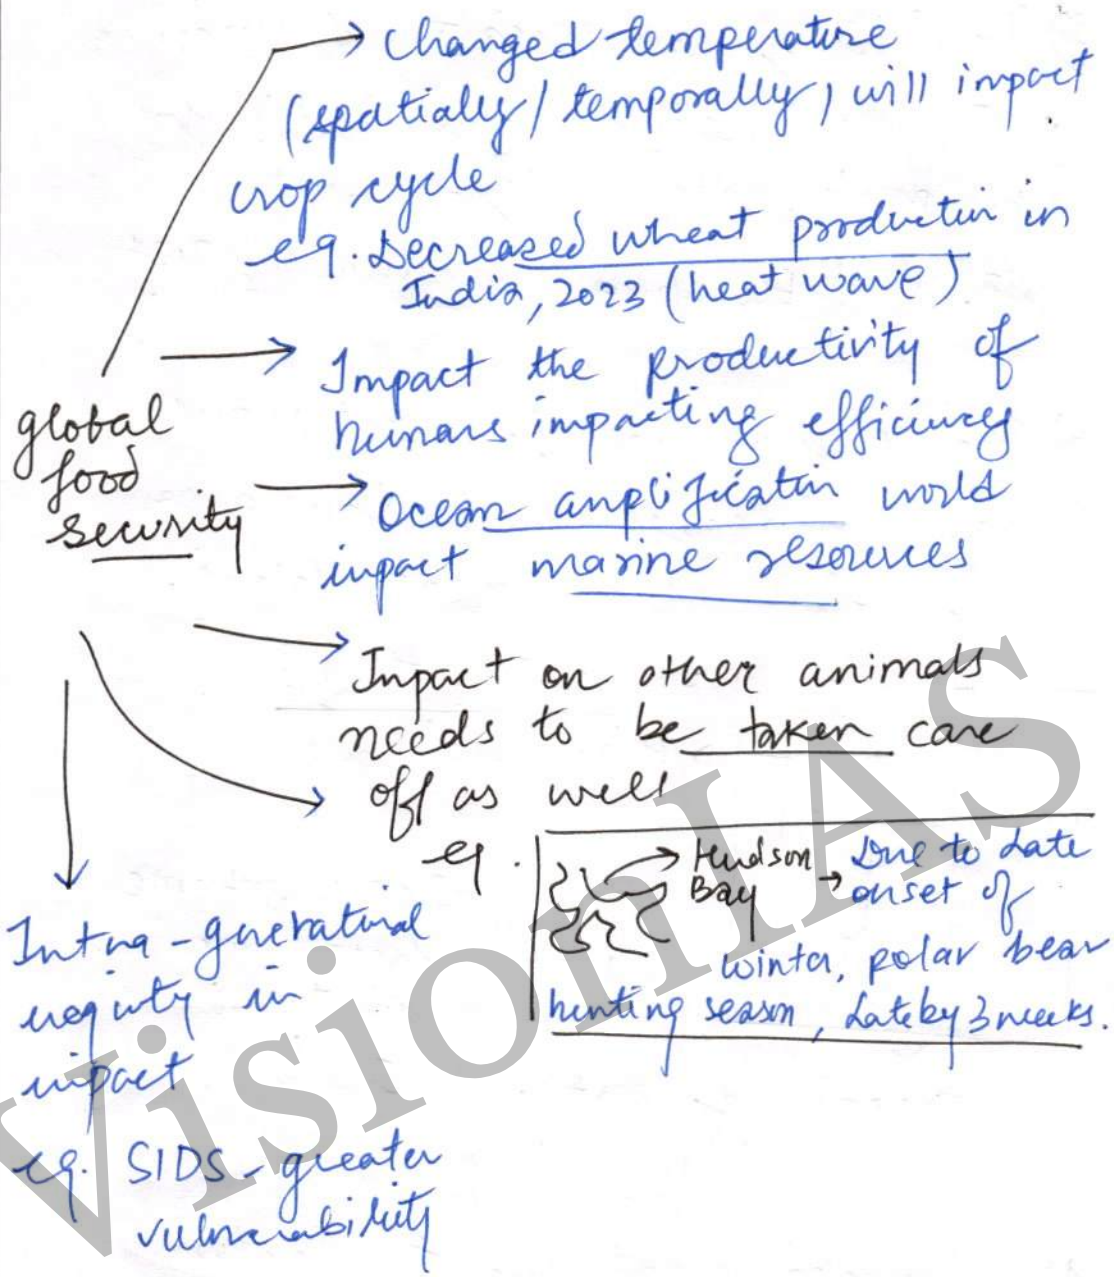 changed temperature
(spatially/temporally) will impact
crop cycle
eg. Decreased wheat production in
India, 2023 (heat wave)
Impact the productivity of
humans impacting efficiency
global
food
security
Ocean amplification world
impact marine resources
Impact on other animals
needs to be taken care
off as well
eg.
Hudson
Bay
Due to Late
onset of
winter, polar bear
hunting season, Late by 3 weeks.
Intra-generational
inequity in
impact
eg. SIDS - greater
vulnerability
VisionIAS